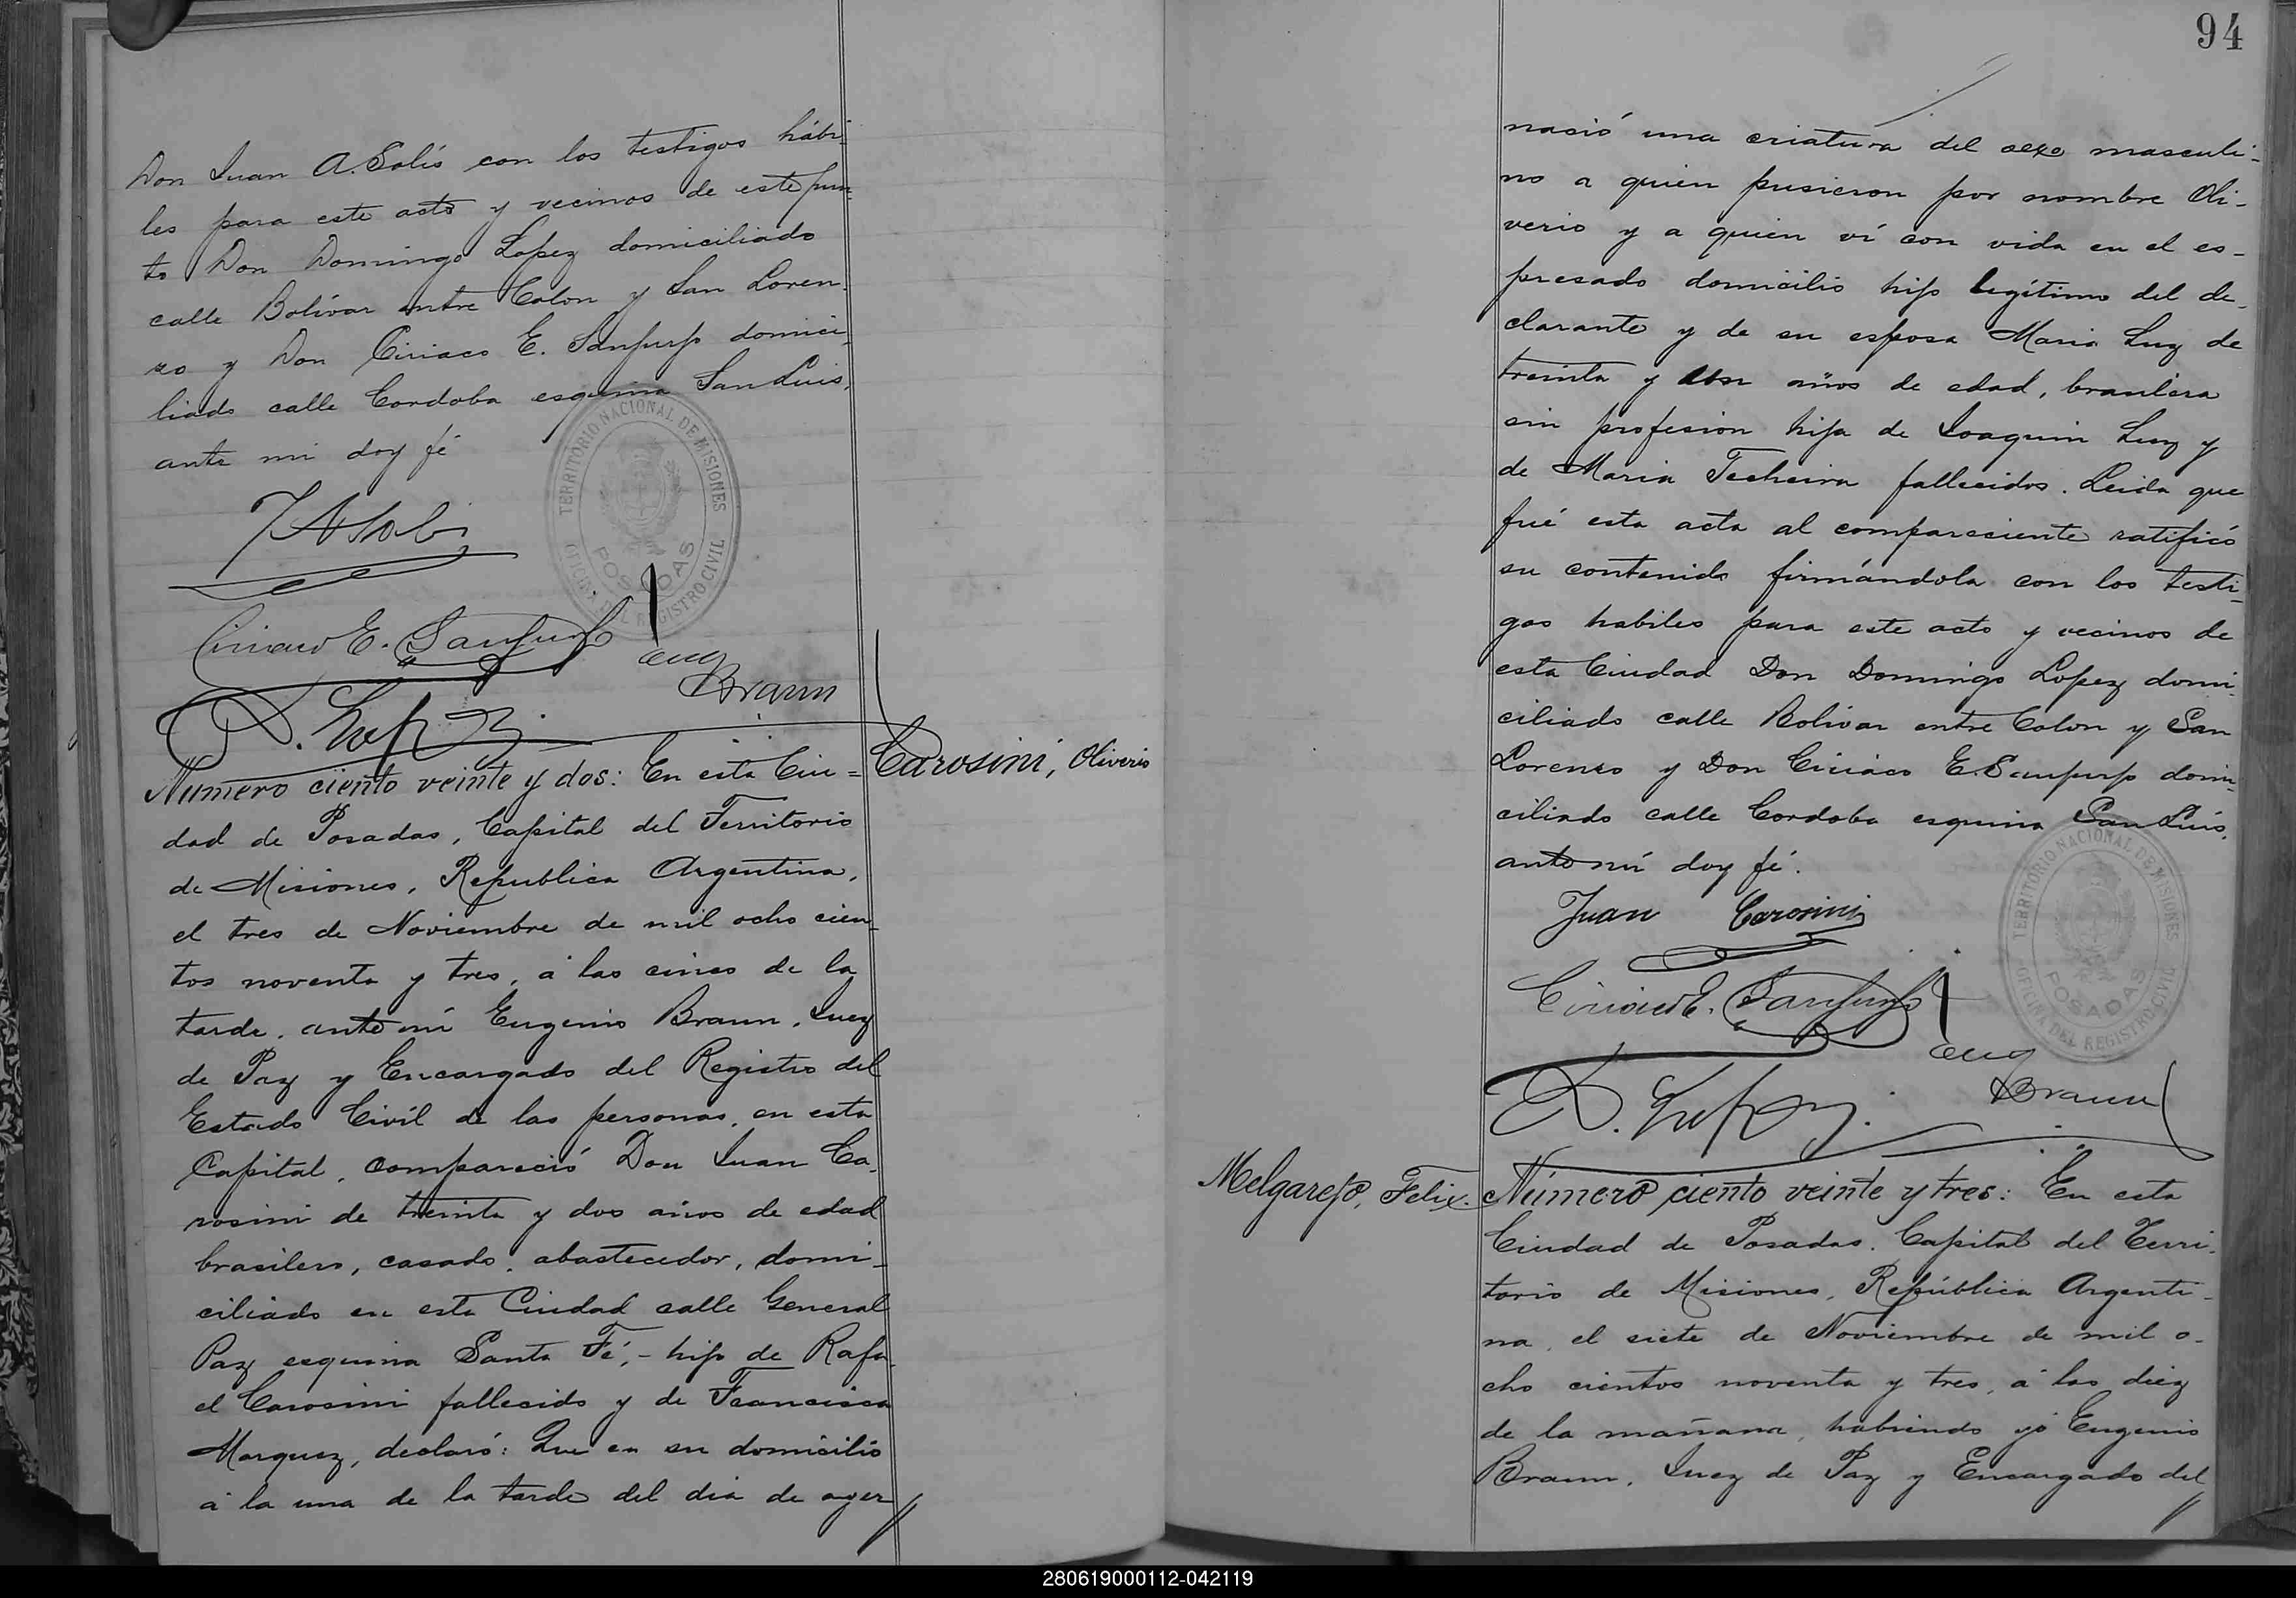 Don Juan A. Solís con los testigos hábi-
les para este acto y vecinos de este pun-
to Don Domingo Lopez domiciliado
calle Bolívar entre Colon y San Loren-
zo y Don Ciriaco E. Sanjurjo domici-
liado calle Cordoba esquina San Luis,
ante mi doy fé
TERRITORIO NACIONAL DE MISIONES
POSADAS
OFICINA DEL REGISTRO CIVIL
Ciriaco E. Sanjurjo
Eug
Braun
D. Lopez
Carosini, Oliverio
Número ciento veinte y dos: En esta Ciu=
dad de Posadas, Capital del Territorio
de Misiones, Republica Argentina,
el tres de Noviembre de mil ocho cien-
tos noventa y tres, á las cinco de la
tarde, ante mí Eugenio Braun, Juez
de Paz y Encargado del Registro del
Estado Civíl de las personas, en esta
Capital, compareció Don Juan Ca-
rosini de treinta y dos años de edad
brasilero, casado, abastecedor, domi-
ciliado en esta Ciudad calle General
Paz esquina Santa Fé,- hijo de Rafa-
el Carosini fallecido y de Francisca
Marquez, declaró: Que en su domicilio
á la una de la tarde del dia de ayer
94
nació una criatura del sexo masculi-
no a quien pusieron por nombre Oli-
verio y a quien ví con vida en el es-
presado domicilio hijo legítimo del de-
clarante y de su esposa Maria Luz de
treinta y un años de edad, brasilera
sin profesion hija de Joaquin Luz y
de Maria Techeira fallecidos. Leida que
fué esta acta al compareciente ratificó
su contenido firmándola con los testi-
gos habiles para este acto y vecinos de
esta Ciudad Don Domingo Lopez domi-
ciliado calle Bolivar entre Colon y San
Lorenzo y Don Ciriáco E. Sanjurjo domi-
ciliado calle Cordoba esquina San Luís,
ante mí doy fé.
Juan Carosini
TERRITORIO NACIONAL DE MISIONES
POSADAS
OFICINA DEL REGISTRO CIVIL
Ciriaco E. Sanjurjo
Eug
Braun
D. Lopez
Melgarejo, Felix.
Número ciento veinte y tres: En esta
Ciudad de Posadas, Capital del Terri-
torio de Misiones, República Argenti-
na, el siete de Noviembre de mil o-
cho cientos noventa y tres, á las diez
de la mañana, habiendo yó Eugenio
Braun, Juez de Paz y Encargado del
280619000112-042119